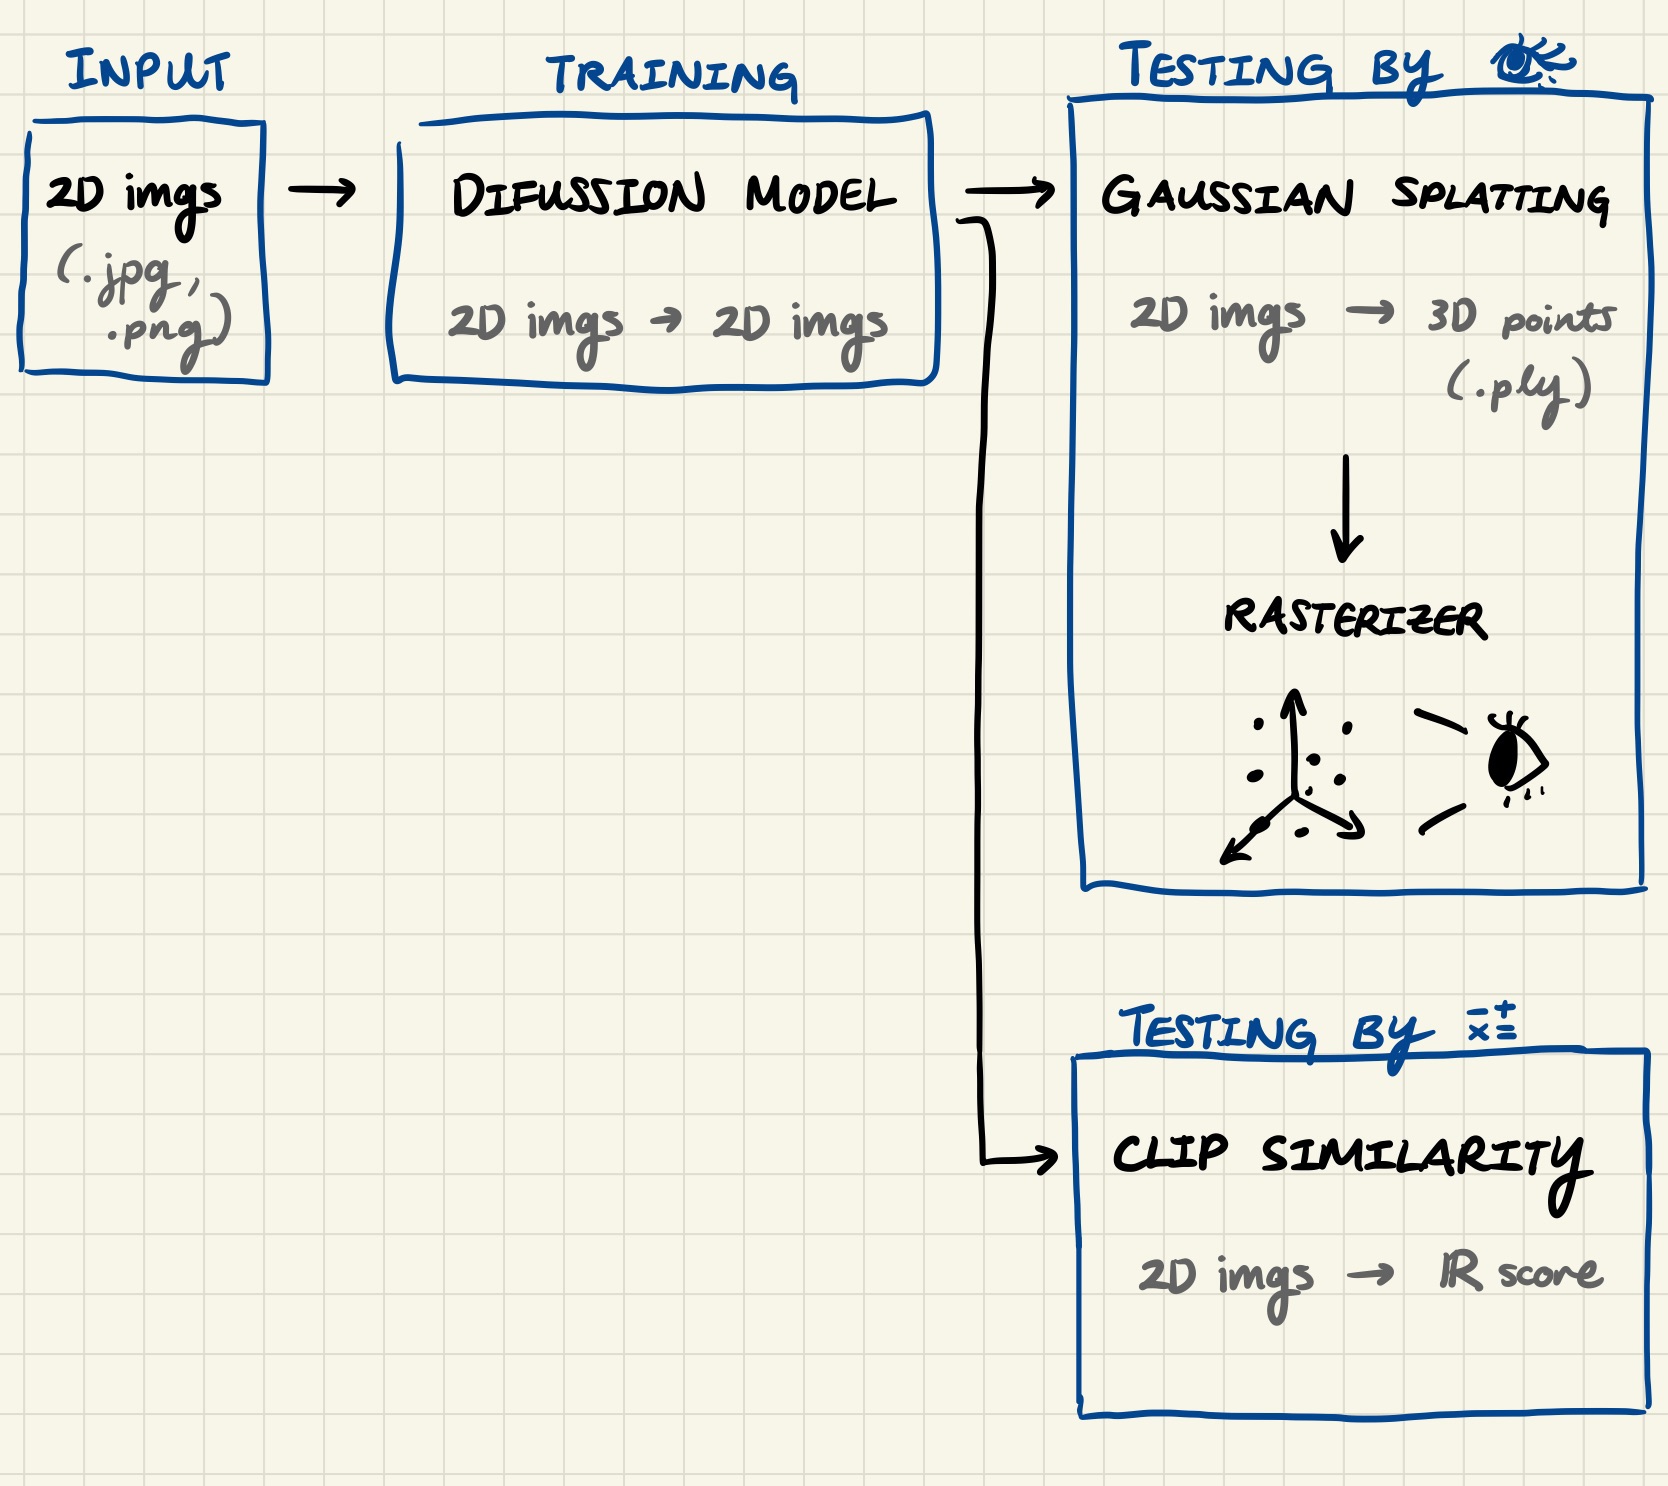 INPUT
2D imgs
(.jpg,
.png)
TRAINING
DIFUSSION MODEL
2D imgs → 2D imgs
TESTING BY
GAUSSIAN SPLATTING
2D imgs → 3D points
(.ply)
RASTERIZER
TESTING BY - + × =
CLIP SIMILARITY
2D imgs → ℝ score